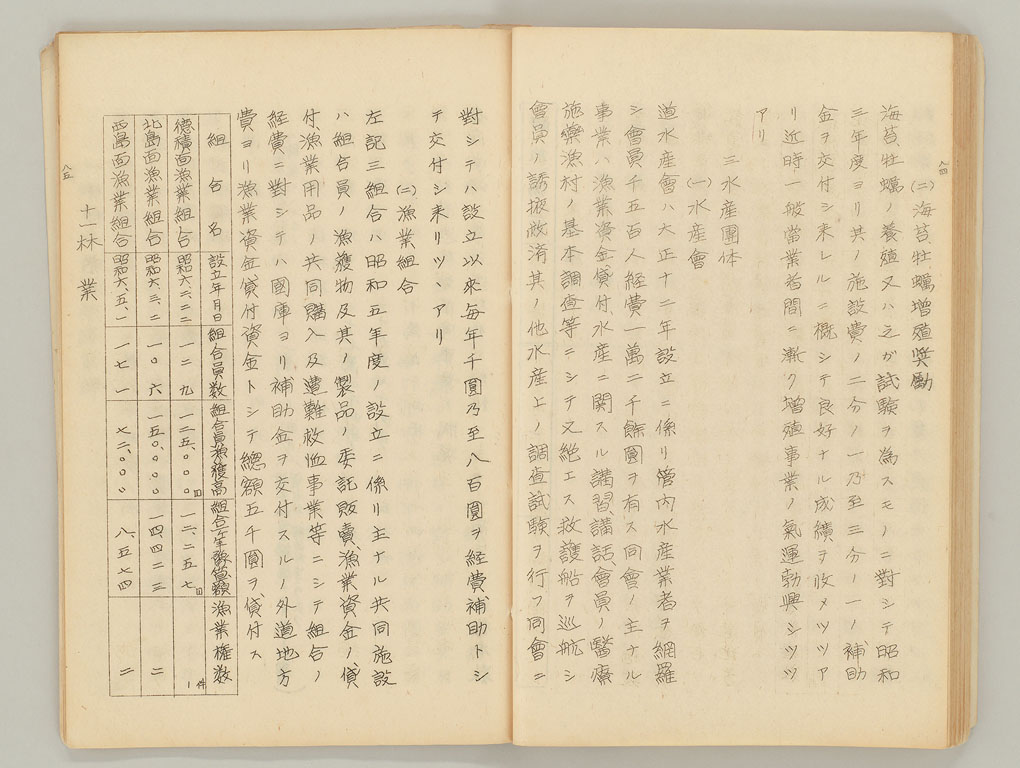 八四
(二)海苔、牡蠣增殖奬勵
海苔、牡蠣ノ養殖又ハ之ガ試驗ヲ為スモノニ對シテ昭和
三年度ヨリ其ノ施設費ノ二分ノ一乃至三分ノ一ノ補助
金ヲ交付シ来レルニ概シテ良好ナル成績ヲ收メツツア
リ近時一般當業者間ニ漸ク增殖事業ノ氣運勃興シツツ
アリ
三水産團体
(一)水産會
道水産會ハ大正十二年設立ニ係リ管內水産業者ヲ網羅
シ會員千五百人経費一萬二千餘圓ヲ有ス同會ノ主ナル
事業ハ漁業資金貸付、水産ニ関スル講習講話會員ノ醫療
施藥漁村ノ基本調査等ニシテ又絕エス救護船ヲ巡航シ
會員ノ誘掖救済其ノ他水産上ノ調査試験ヲ行フ同會ニ
對シテハ設立以來每年千圓乃至八百圓ヲ経費補助トシ
テ交付シ来リツヽアリ
(二)漁業組合
左記三組合ハ昭和五年度ノ設立ニ係リ主ナル共同施設
ハ組合員ノ漁獲物及其ノ製品ノ委託販賣、漁業資金ノ貸
付、漁業用品ノ共同購入及遭難救恤事業等ニシテ組合ノ
経費ニ對シテハ國庫ヨリ補助金ヲ交付スルノ外道地方
費ヨリ漁業資金貸付資金トシテ總額五千圓ヲ貸付ス
組合名 設立年月日 組合員数 組合員漁獲高 組合 漁業権数
德積面漁業組合 昭和六、二、二 一二九 一二五、〇〇〇円 一二、二五七円 1件
北島面漁業組合 昭和六、三、二 一〇六 一五〇、〇〇〇 一四、四二三 二
西島面漁業組合 昭和六、五、一 一七一 七二、〇〇〇 八、五七四 二
十一林業
八五